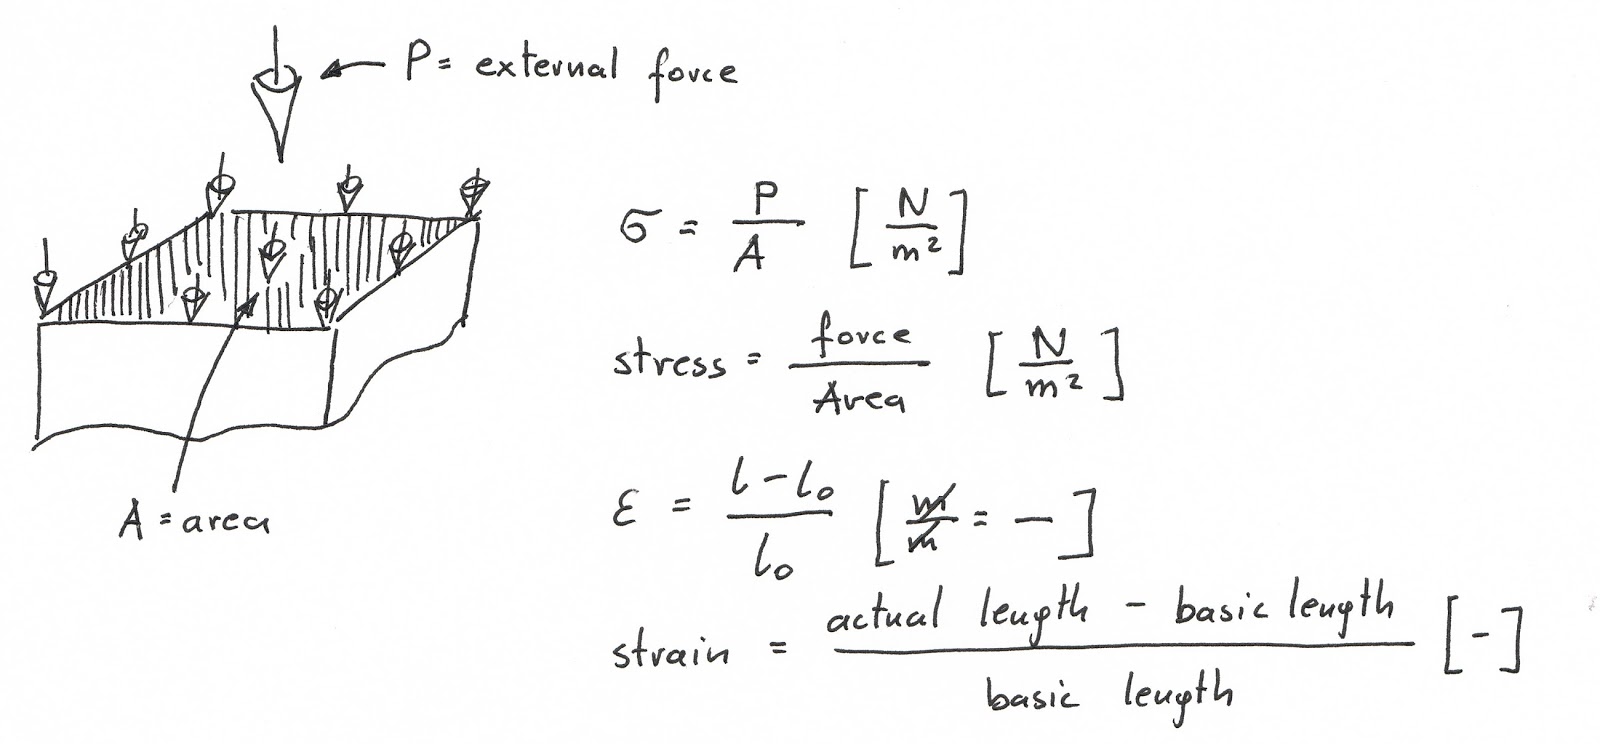 P = external force
σ = P/A [N/m²]
stress = force/Area [N/m²]
A = area
ε = l - l₀/l₀ [m/m = -]
strain = actual length - basic length/basic length [-]